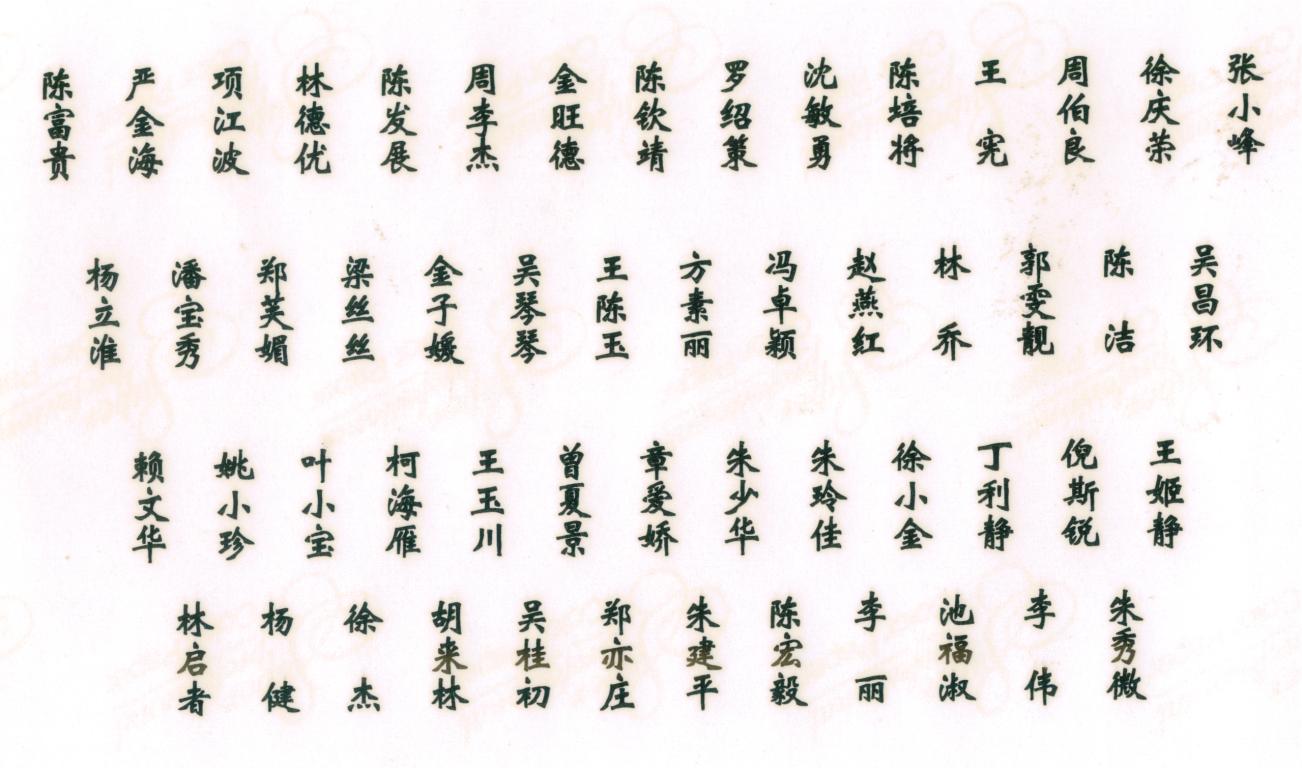 陈富贵 严金海 项江波 林德优 陈发展 周李杰 金旺德 陈钦靖 罗绍策 沈敏勇 陈培将 王宪 周伯良 徐庆荣 张小峰
杨立淮 潘宝秀 郑芙媚 梁丝丝 金子媛 吴琴琴 王陈玉 方素丽 冯卓颖 赵燕红 林乔 郭雯靓 陈洁 吴昌环
赖文华 姚小珍 叶小宝 柯海雁 王玉川 曾夏景 章爱娇 朱少华 朱玲佳 徐小金 丁利静 倪斯锐 王姬静
林启者 杨健 徐杰 胡来林 吴桂初 郑亦庄 朱建平 陈宏毅 李丽 池福淑 李伟 朱秀微